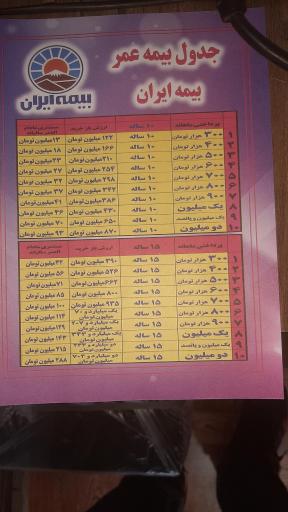 جدول بیمه عمر
بیمه ایران
بیمه ایران
پرداختی ماهانه ۱۰ ساله ارزش باز خرید
۱ ۳۰۰ هزار تومان ۱۰ ساله ۱۲۲ میلیون تومان ۱۳ میلیون تومان
۲ ۴۰۰ هزار تومان ۱۰ ساله ۱۶۶ میلیون تومان ۱۸ میلیون تومان
۳ ۵۰۰ هزار تومان ۱۰ ساله ۲۱۰ میلیون تومان ۲۳ میلیون تومان
۴ ۶۰۰ هزار تومان ۱۰ ساله ۲۵۴ میلیون تومان ۲۷ میلیون تومان
۵ ۷۰۰ هزار تومان ۱۰ ساله ۲۹۸ میلیون تومان ۳۲ میلیون تومان
۶ ۸۰۰ هزار تومان ۱۰ ساله ۳۴۲ میلیون تومان ۳۷ میلیون تومان
۷ ۹۰۰ هزار تومان ۱۰ ساله ۳۸۶ میلیون تومان ۴۱ میلیون تومان
۸ یک میلیون ۱۰ ساله ۴۳۰ میلیون تومان ۴۶ میلیون تومان
۹ یک میلیون و پانصد ۱۰ ساله ۶۵۰ میلیون تومان ۷۰ میلیون تومان
۱۰ دو میلیون ۱۰ ساله ۸۷۰ میلیون تومان ۹۳ میلیون تومان
پرداختی ماهانه ۱۵ ساله ارزش باز خرید
۱ ۳۰۰ هزار تومان ۱۵ ساله ۳۹۰ میلیون تومان ۴۲ میلیون تومان
۲ هزار تومان ۱۵ ساله ۵۲۶ میلیون تومان ۵۶ میلیون تومان
۳ ۵۰۰ هزار تومان ۱۵ ساله ۶۶۲ میلیون تومان ۷۱ میلیون تومان
۴ ۶۰۰ هزار تومان ۱۵ ساله ۸۰۰ میلیون تومان ۸۵ میلیون تومان
۵ ۷۰۰ هزار تومان ۱۵ ساله ۹۳۵ میلیون تومان ۱۰۰ میلیون تومان
۶ ۸۰۰ هزار تومان ۱۵ ساله یک میلیارد و ۷۰ میلیون تومان ۱۱۴ میلیون تومان
۷ ۹۰۰ هزار تومان ۱۵ ساله یک میلیارد و میلیون تومان ۱۲۹ میلیون تومان
۸ یک میلیون ۱۵ ساله یک میلیارد و میلیون تومان ۱۴۳ میلیون تومان
۹ یک میلیون و پانصد ۱۵ ساله دو میلیارد و میلیون تومان ۲۱۵ میلیون تومان
۱۰ دو میلیون ۱۵ ساله دو میلیارد و ۷۰۲ میلیون تومان ۲۸۸ میلیون تومان